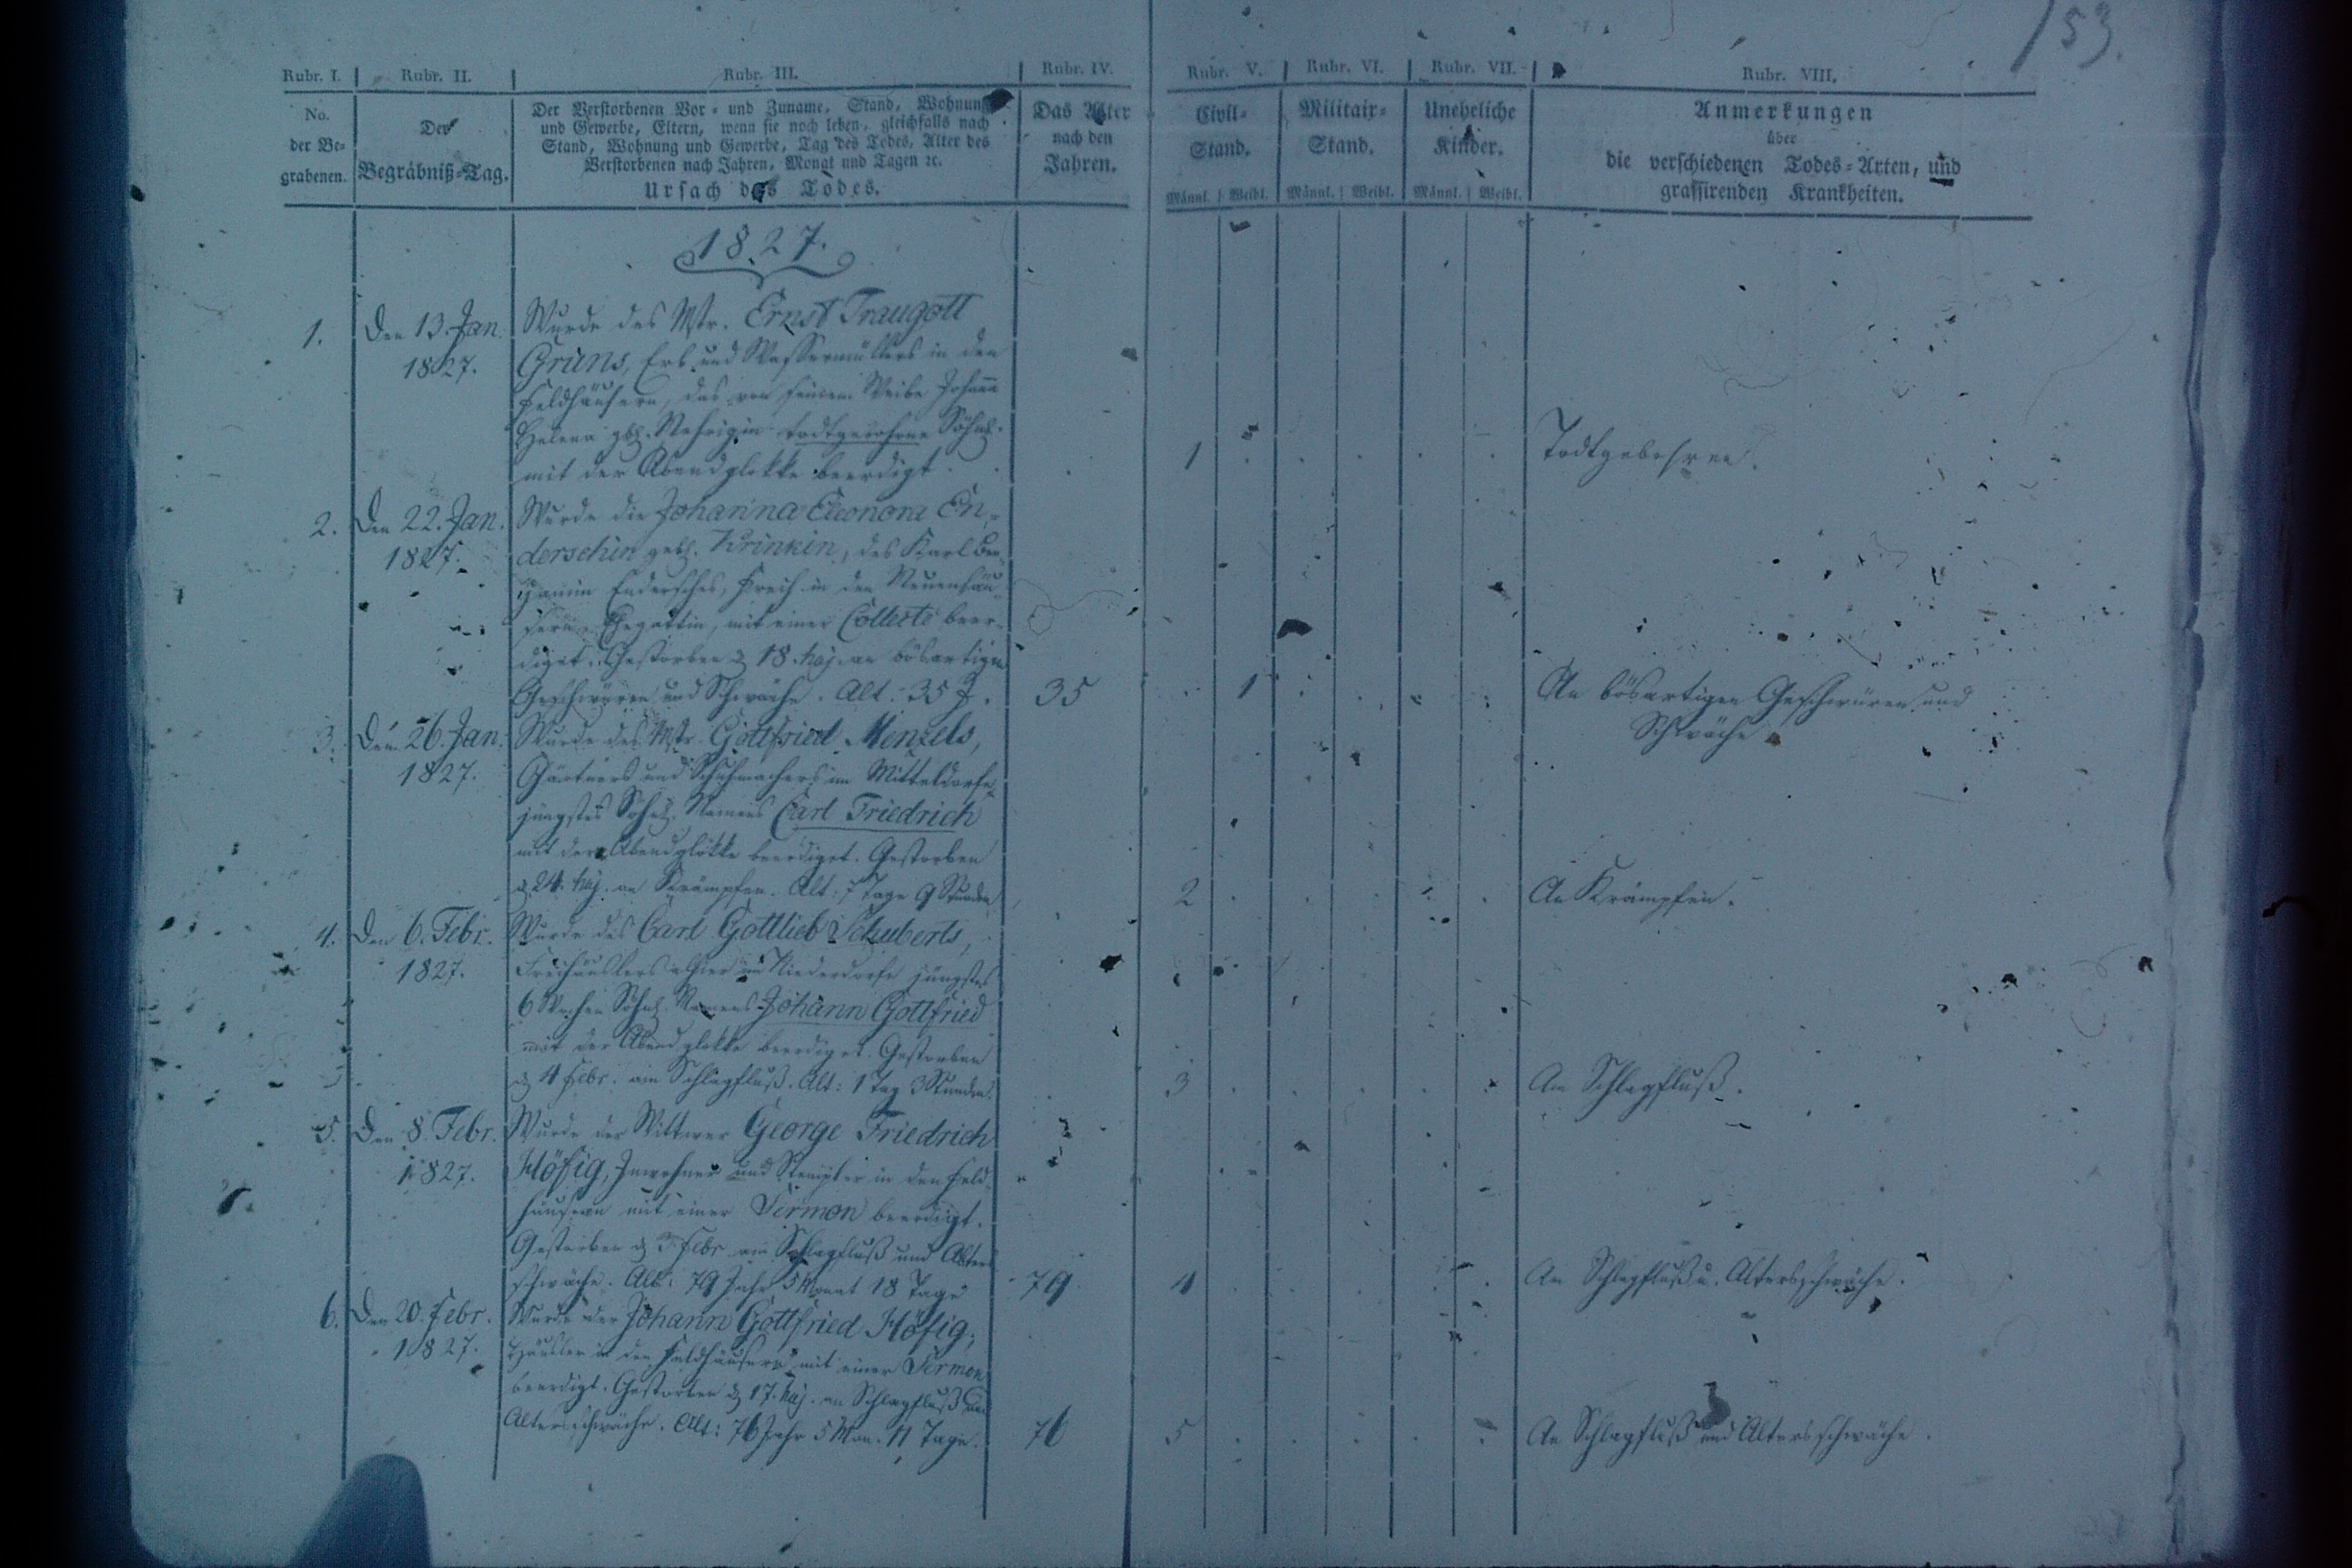 153.
Rubr. I. Rubr. II. Rubr. III. Rubr. IV. Rubr. V. Rubr. VI. Rubr. VII. Rubr. VIII.
No. der Be-grabenen.
Der Begräbniß-Tag.
Der Verstorbenen Vor- und Zuname, Stand, Wohnung
und Gewerbe, Eltern, wenn sie noch leben, gleichfalls nach
Stand, Wohnung und Gewerbe, Tag des Todes, Alter des
Verstorbenen nach Jahren, Monat und Tagen ec.
Ursach des Todes.
Das Alter
nach den
Jahren.
Civil-
Stand.
Männl. Weibl.
Militair-
Stand.
Männl. Weibl.
Uneheliche
Kinder.
Männl. Weibl.
Anmerkungen
über
die verschiedenen Todes-Arten, und
grassirenden Krankheiten.
1827.
1. Den 13. Jan. 1827.
Wurde des Mstr. Ernst Traugott
Gruns, Erb und Wassermüllers in den
Feldhäusern, das von seinem Weibe Johana
Helena geb. todtgebohrne Söhnl.
mit der Abendglokke beerdigt.
1 Todtgebohren.
2. Den 22. Jan. 1827.
Wurde die Johanna Eleonora En-
derschin gebh. Krinkin, des Karl Ben-
jamin Endersches, in den Neuenhäu-
sern Ehegattin, mit einer Collecte beer-
diget. Gestorben d. 18. huj. an bösartigen
Geschwüren und Schwäche. Alt: 35 J.
35 1 An bösartigen Geschwüren und
Schwäche
3. Den 26. Jan. 1827.
Wurde des Mstr. Gottfried Menzels,
Gärtners und Schuhmachers im Mitteldorfe
jüngstes Söhnl. Namens Carl Friedrich
mit der Abendglokke beerdiget. Gestorben
d. 24. huj. an Krämpfen. Alt: 7 Tage 9 Stunden
2 An Krämpfen.
4. Den 6. Febr. 1827.
Wurde des Carl Gottlieb Schuberts,
Freihäuslers alhier im Niederdorfe jüngstes
6 Wochen Söhnl. Namens Johann Gottfried
mit der Abendglokke beerdiget. Gestorben
d. 4 Febr. am Schlagfluß. Alt: 1 Tag 3 Stunden.
3 Am Schlagfluß.
5. Den 8. Febr. 1827.
Wurde der Wittwer George Friedrich
Höfig, Inwohner und in den Feld-
häusern mit einer Sermon beerdigt.
Gestorben d. 5 Febr am Schlagfluß und Alters
schwäche. Alt: 79 Jahr 5 Monat 18 Tage
79 4 An Schlagfluß u. Altersschwäche.
6. Den 20. Febr. 1827.
Wurde der Johann Gottfried Höfig,
Häusler in den Feldhäusern mit einer Sermon
beerdigt. Gestorben d. 17. huj. an Schlagfluß und
Altersschwäche. Alt: 76 Jahr 5 Mon. 11 Tage.
76 5 An Schlagfluß und Altersschwäche.